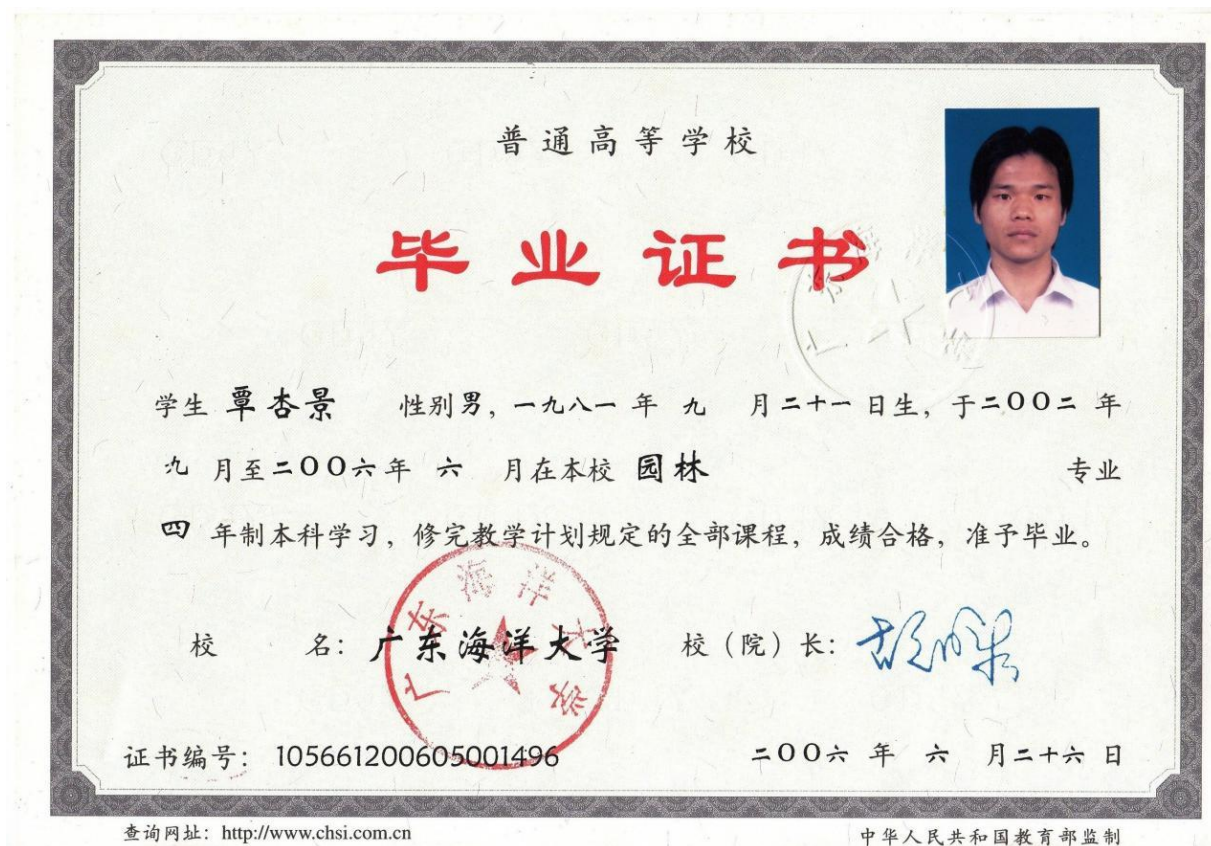 普通高等学校
毕业证书
学生 覃杏景 性别男，一九八一 年 九 月二十一 日生，于二00二 年
九 月至二00六年 六 月在本校 园林 专业
四 年制本科学习，修完教学计划规定的全部课程，成绩合格，准予毕业。
广东海洋大学
校 名：广东海洋大学 校（院）长：
证书编号： 105661200605001496 二00六 年 六 月二十六 日
查询网址：http://www.chsi.com.cn 中华人民共和国教育部监制